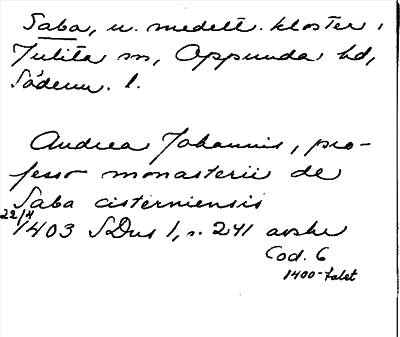 Saba, n. medelt. kloster i
Julita sn, Oppunda hd,
Söderm. l.
Andrea Johannis, pro-
fesso monasterii de
Saba cisterniensis
22/4 1403 SDns 1, s. 241 avskr
Cod. 6
1400-talet